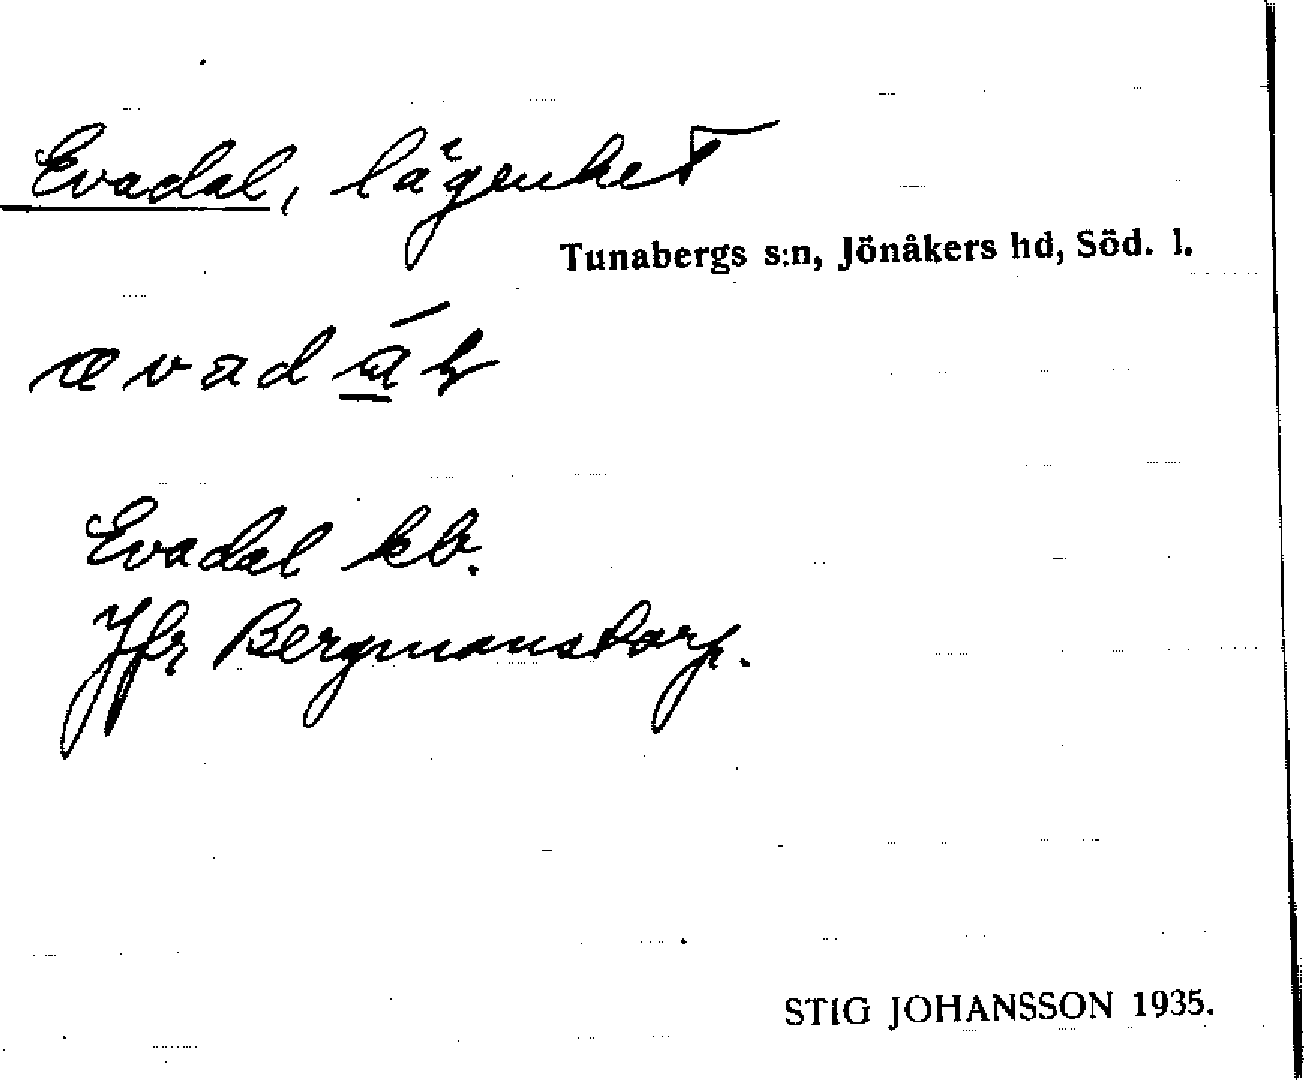 Evadal, lägenhet
Tunabergs s:n, Jönåkers hd, Söd. l.
Evadal kb.
Jfr Bergmanstorp.
STIG JOHANSSON 1935.